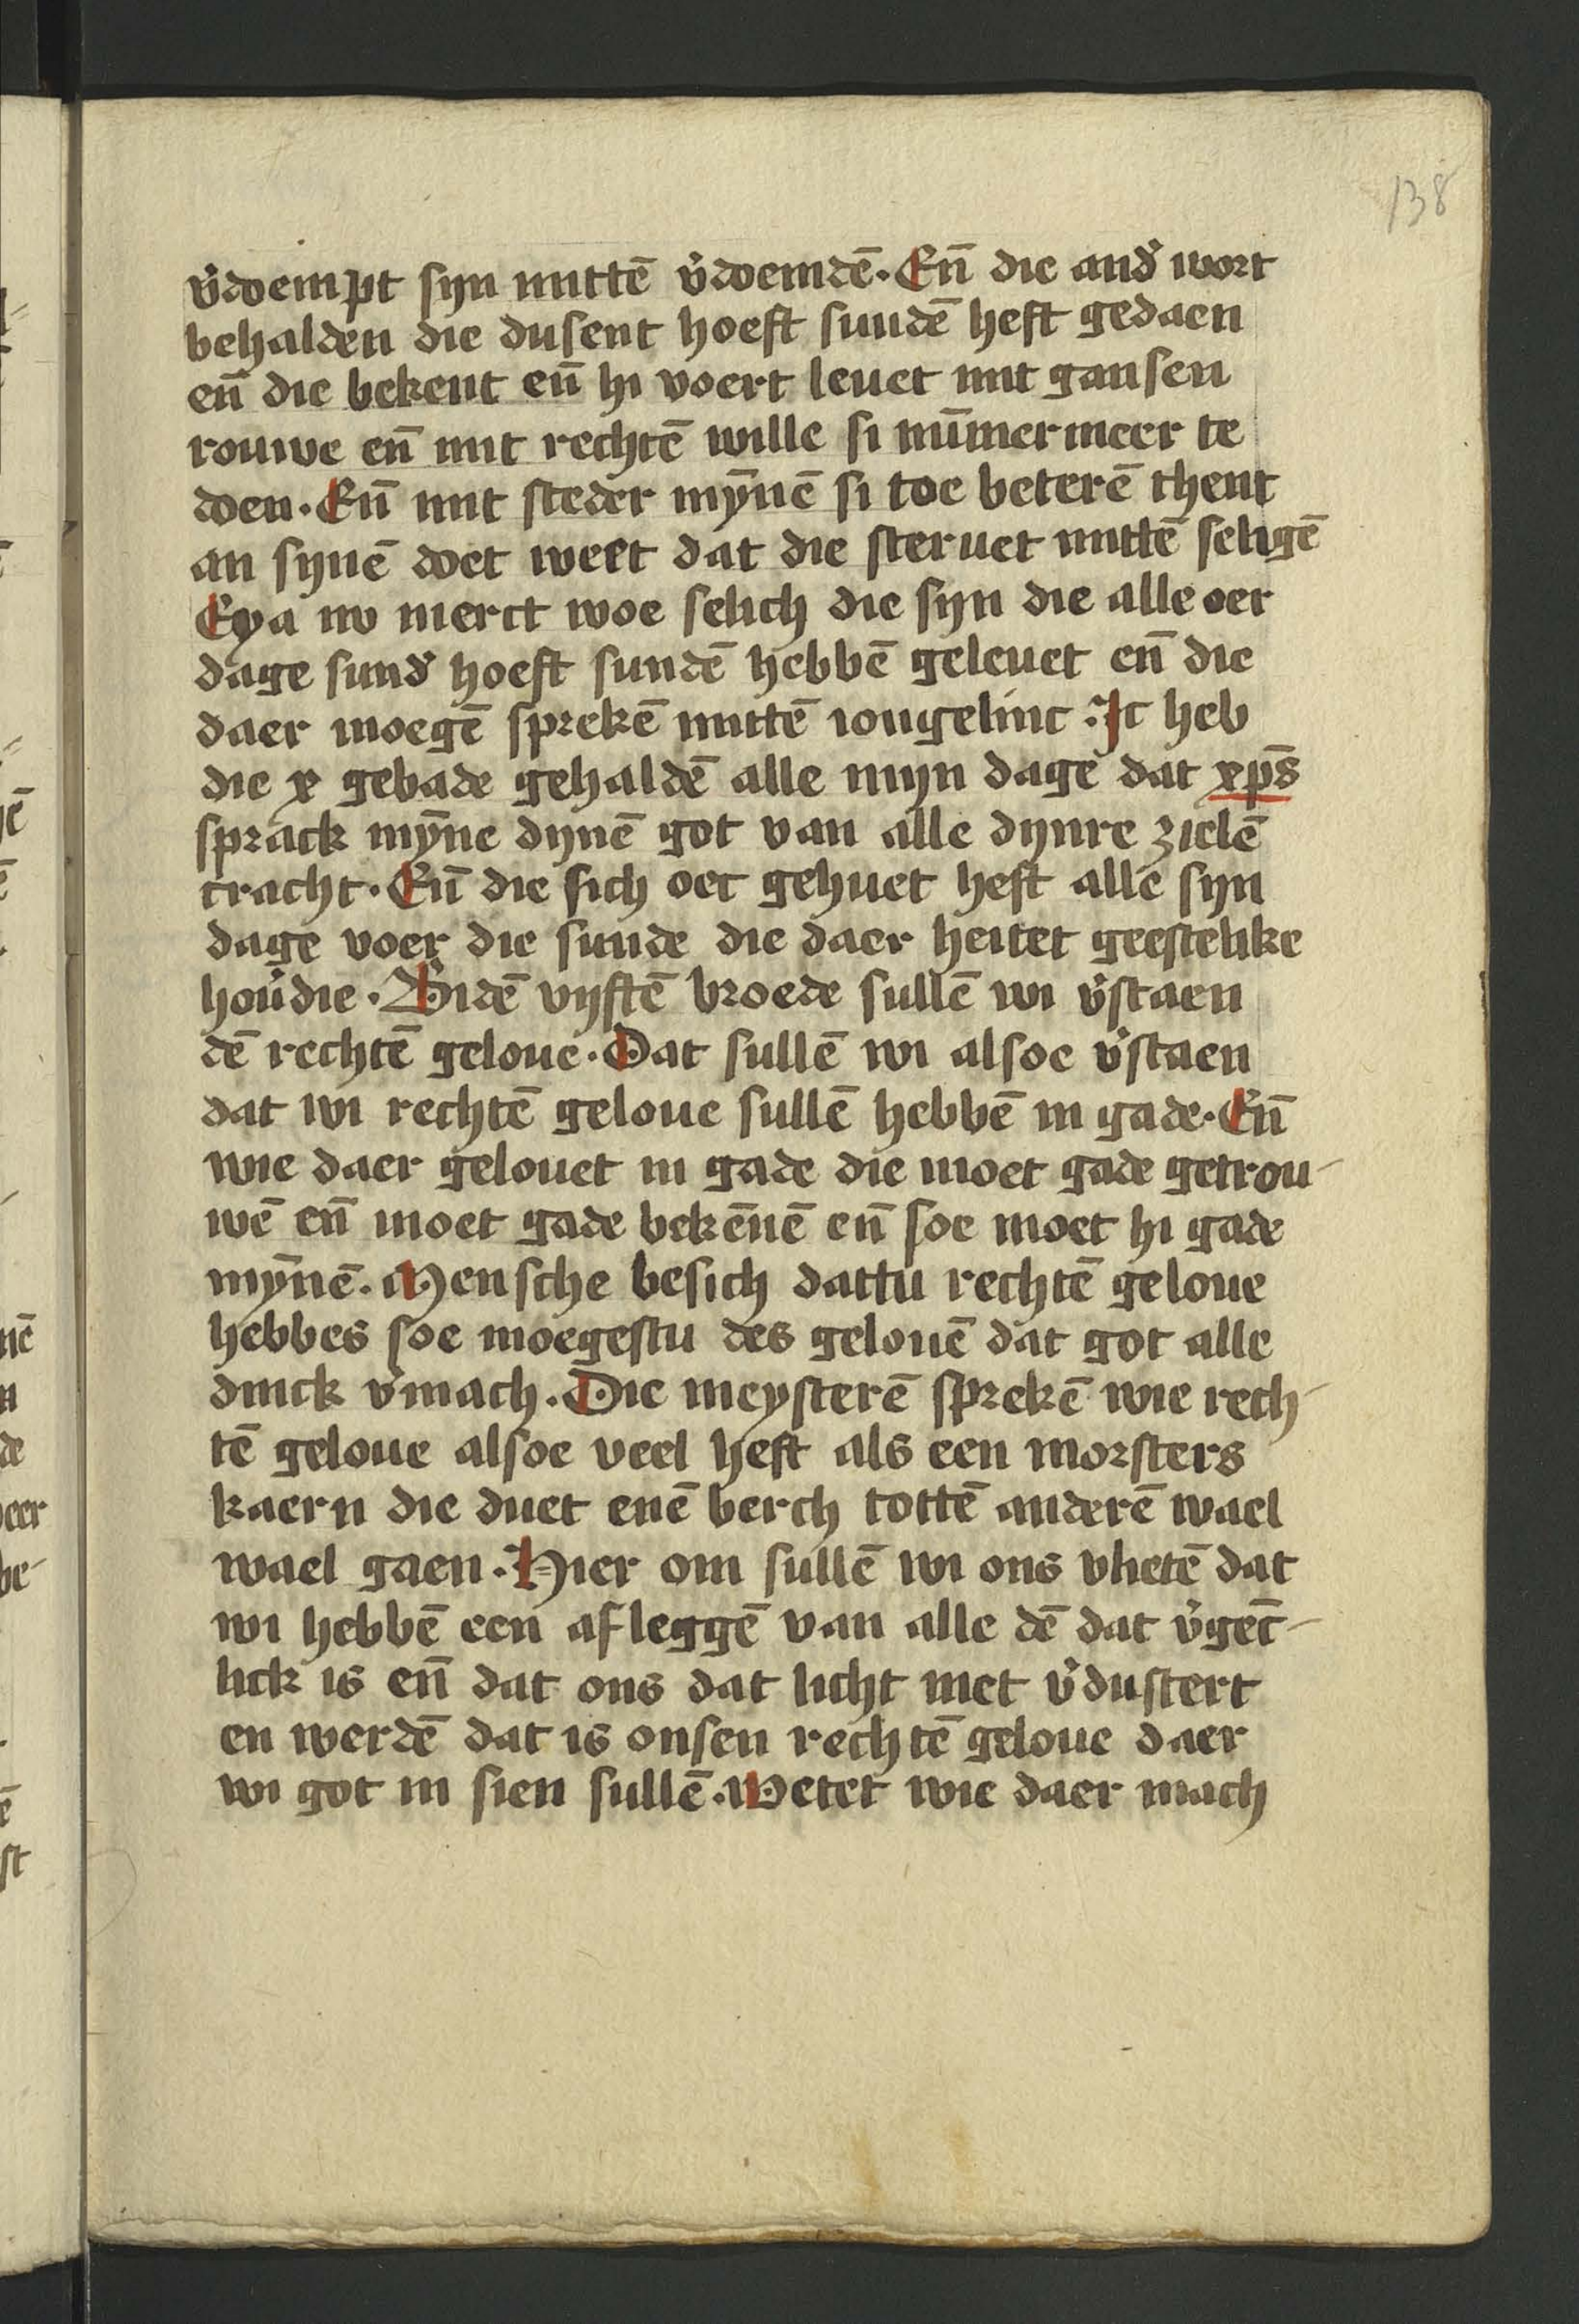 138
v̓doempt syn mittē v̓doemdē. En̄ die and̓ wort
behalden die dusent hoeft sundē heft gedaen
en̄ die bekent en̄ hi voert leuet mit gansen
rouwe en̄ mit rechtē wille si nūmermeer te
doen. En̄ mit steder mȳnē si toe beterē thent
an synē doet weet dat die steruet mittē seligē
Eya nv merct woe selich die syn die alle oer
dage sund̓ hoeft sundē hebbē geleuet en̄ die
daer moegē sprekē mittē iongelinc. Jc heb
die x gebade gehaldē alle myn dage dat xp̄s
sprack mȳne dynē got van alle dynre zielē
cracht. En̄ die sich oec gehuet heft alle syn
dage voer die sunde die daer heitet geestelike
hou̓die. Bidē vyftē broede sullē wi v̓staen
dē rechtē geloue. Dat sullē wi alsoe v̓staen
dat wi rechtē geloue sullē hebbē in gade. En̄
wie daer gelouet in gade die moet gade getrou-
wē en̄ moet gade bekēnē en̄ soe moet hi gade
mȳnē. Mensche besich dattu rechtē geloue
hebbes soe moegestu des gelouē dat got alle
dinck v̓mach. Die meysterē sprekē wie rech-
tē geloue alsoe veel heft als een morsters
kaern die duet enē berch tottē anderē wael
wael gaen. Hier om sullē wi ons vlietē dat
wi hebbē een afleggē van alle dē dat v̓gēc-
lick is en̄ dat ons dat licht niet v̓dustert
en werdē dat is onsen rechtē geloue daer
wi got in sien sullē. Wetet wie daer mach